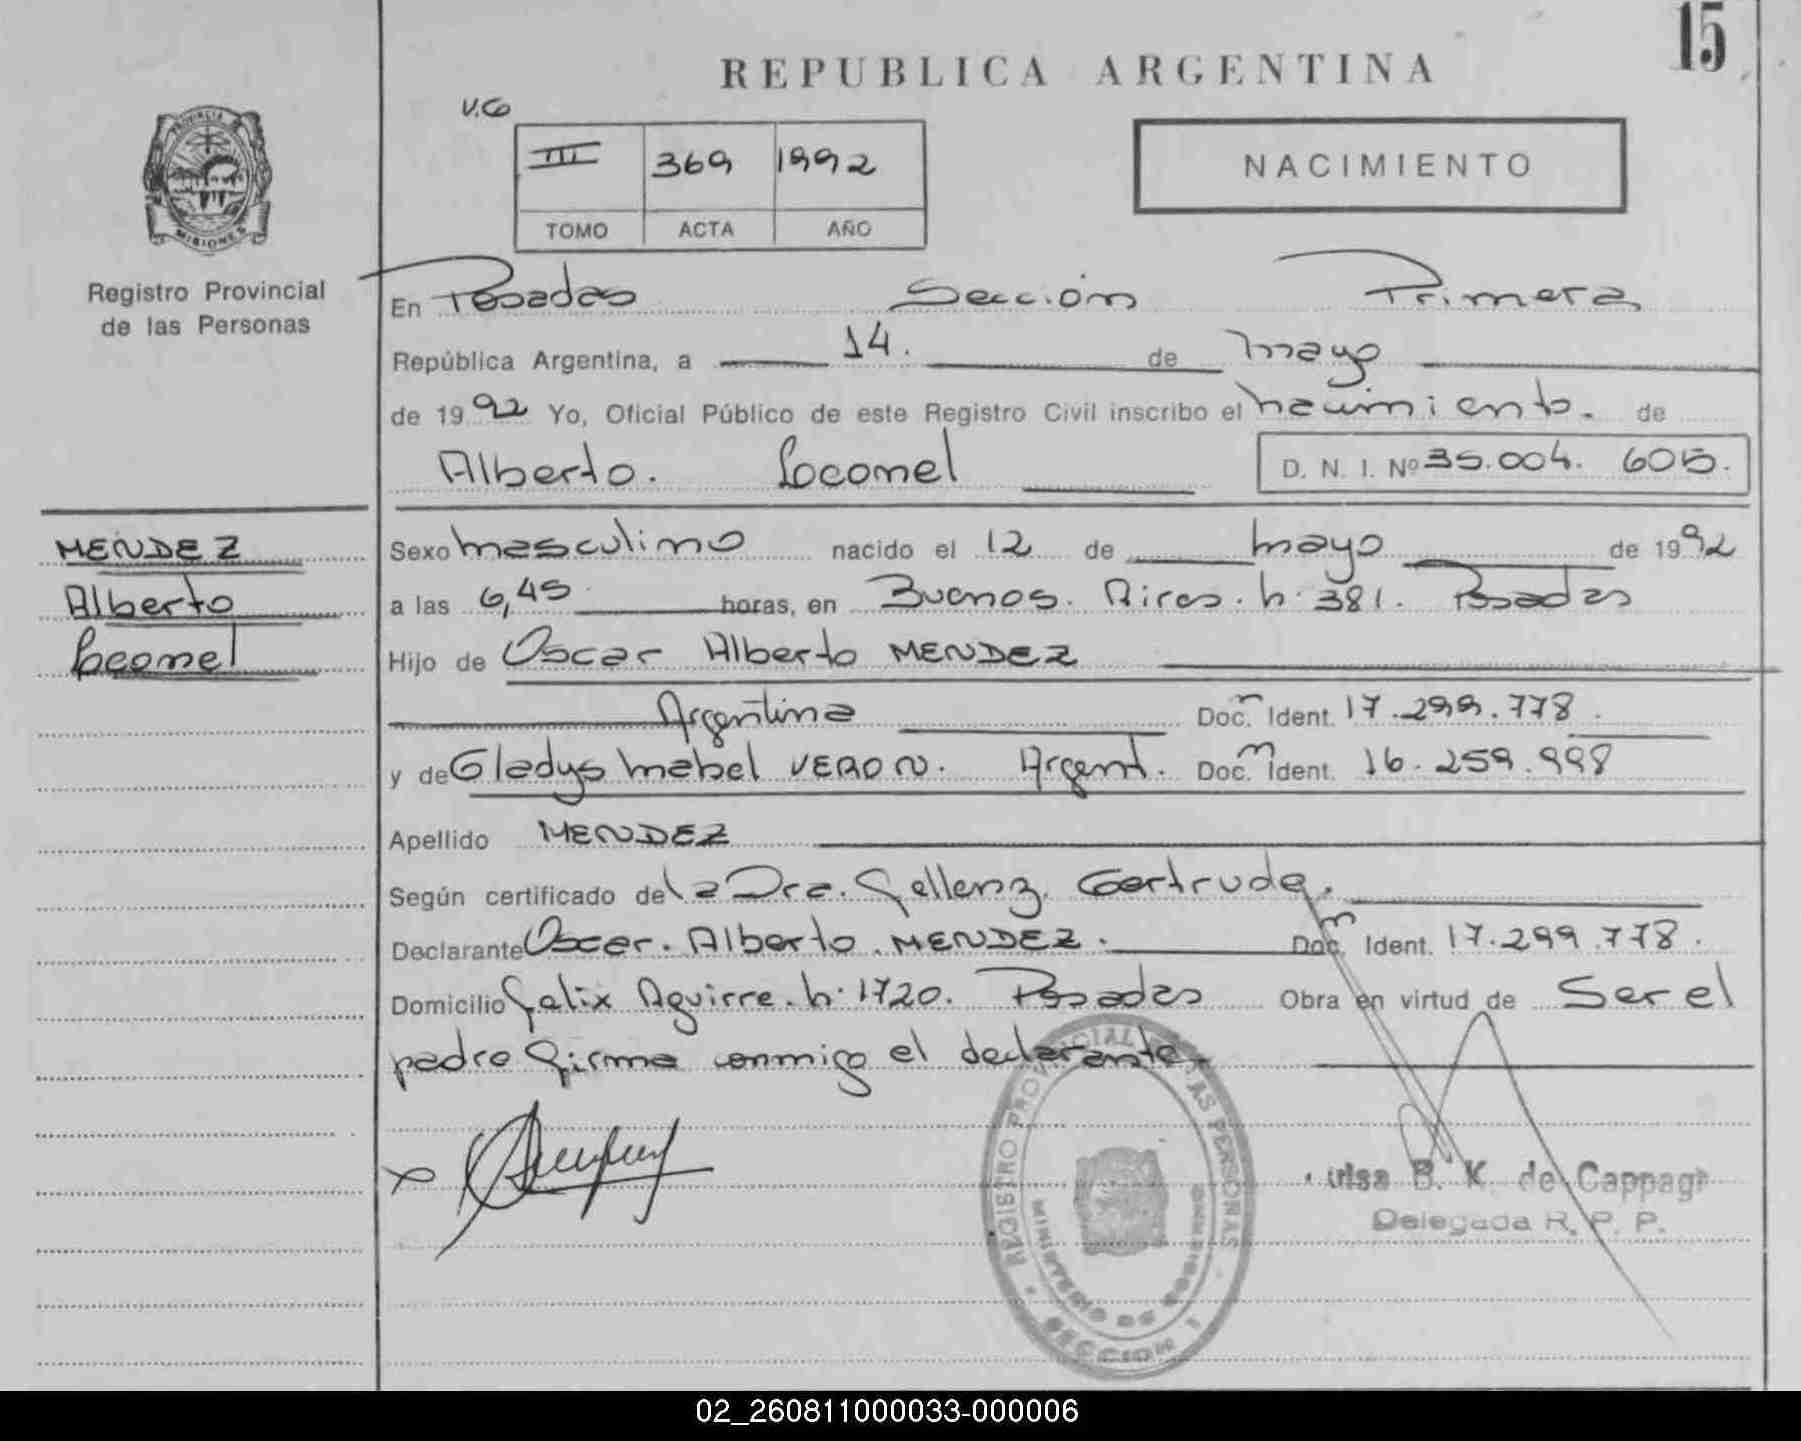 15
REPUBLICA ARGENTINA
V.G
III 369 1992
TOMO ACTA AÑO
NACIMIENTO
PROVINCIA DE
MISIONES
Registro Provincial
de las Personas
En Posadas Sección Primera
República Argentina, a 14. de mayo
de 1992 Yo, Oficial Público de este Registro Civil inscribo el nacimiento. de
Alberto. Leonel D. N. I. Nº 35.004. 605.
MENDEZ
Alberto
Leonel
Sexo masculino nacido el 12 de mayo de 1992
a las 6,45 horas, en Buenos. Aires. n. 381. Posadas
Hijo de Oscar Alberto MENDEZ
Argentina Doc. m Ident. 17.299.778
y de Gladys Mabel VERON. Argent. Doc. m Ident. 16.259.998
Apellido MENDEZ
Según certificado de la Dra. Gertrude.
Declarante Oscar. Alberto. MENDEZ. Doc. m Ident. 17.299.778.
Domicilio Felix Aguirre. n. 1720. Posadas Obra en virtud de Ser el
padre firma conmigo el declarante.
REGISTRO PROVINCIAL DE LAS PERSONAS
MINISTERIO DE GOBIERNO
SECCION 1
B. K. de Cappagi
Delegada R. P. P.
02_260811000033-000006